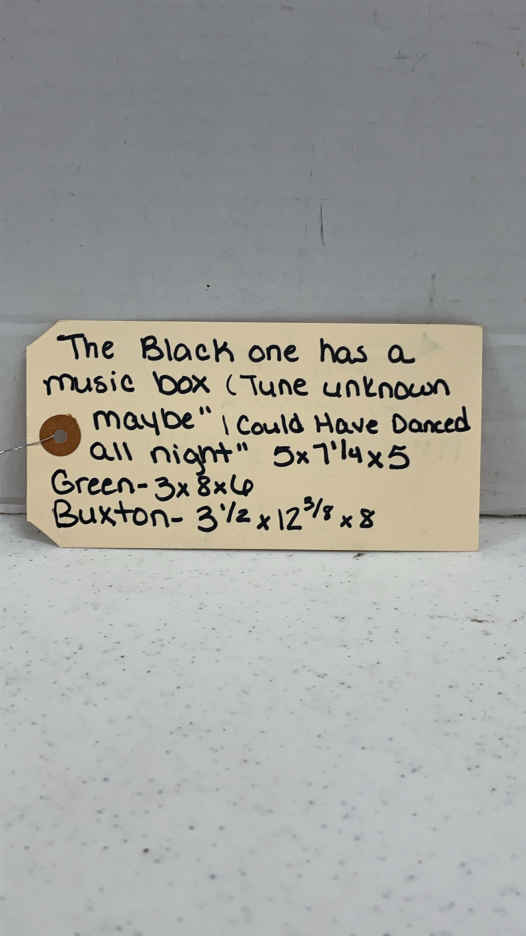 The Black one has a
music box (Tune unknown
maybe" i Could Have Danced
all night" 5x7 1/4 x 5
Green- 3x8x6
Buxton- 3 1/2 x 12 3/8 x 8